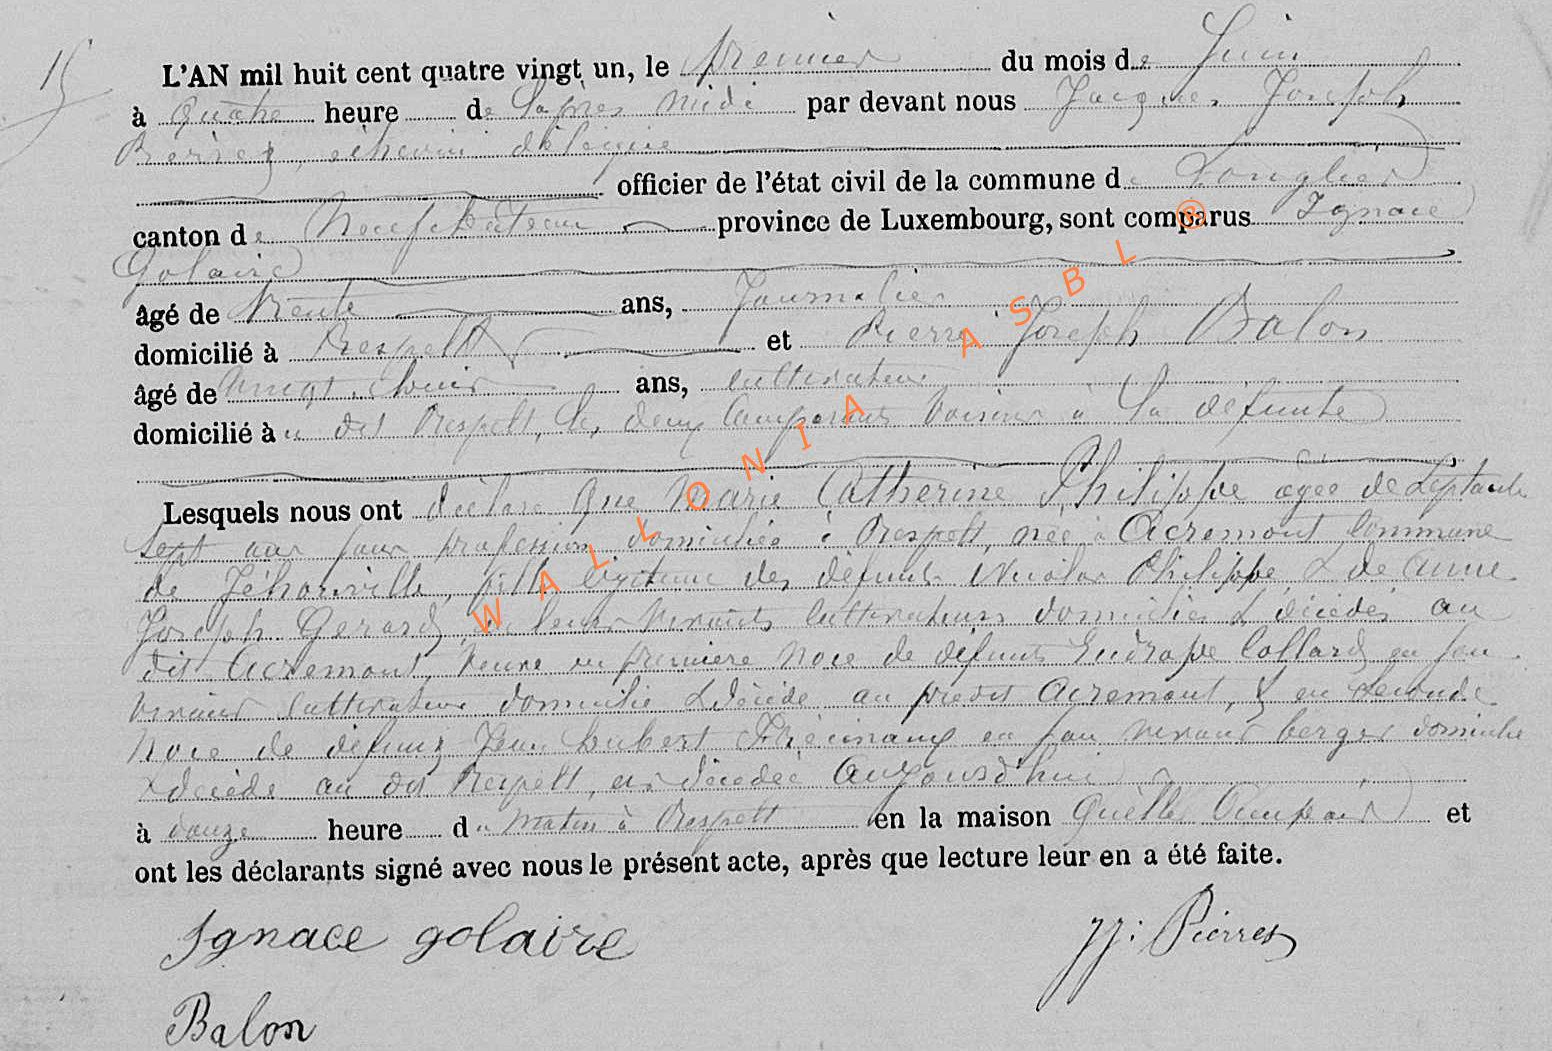 15
L'AN mil huit cent quatre vingt un, le premier du mois de Juin
à quatre heure de l'après midi par devant nous Jacques Joseph
Pierres, échevin délégué
officier de l'état civil de la commune de Longlier
canton de Neufchâteau province de Luxembourg, sont comparus Ignace
Golaire
âgé de trente ans, Journalier
domicilié à Respelt et Pierre Joseph Balon
âgé de vingt ans, cultivateur
domicilié à au dit Respelt, les deux comparants voisins à la défunte
Lesquels nous ont déclaré que Marie Catherine Philippe agée de septante
sept ans sans profession domiciliée à Respelt, née à Acremont commune
de Jéhonville, fille légitime des défunts Nicolas Philippe & de Anne
Joseph Gerard en leurs vivants cultivateurs domiciliés & décédés au
dit Acremont, veuve en première noce de défunt Collard en son
vivant cultivateur domicilié & décédé au prédit Acremont, & en seconde
noce de défunt Jean hubert en son vivant berger domicilié
& décédé au dit Respelt, est décédée Aujourd'hui
à onze heure du matin à Respelt en la maison quelle occupait et
ont les déclarants signé avec nous le présent acte, après que lecture leur en a été faite.
Ignace golaire
JJ: Pierres
Balon
WALLONIA ASBL ®